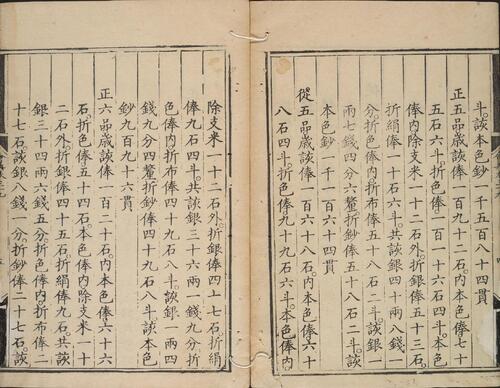 斗。該本色鈔一千五百八十四貫
正五品歲該俸一百九十二石。內本色俸七十
五石六斗。折色俸一百一十六石四斗。本色
俸內除支米一十二石外。折銀俸五十三石。
折絹俸一十石六斗。共該銀四十兩八錢一
分。折色俸內折布俸五十八石二斗。該銀一
兩七錢四分六釐。折鈔俸五十八石二斗。該
本色鈔一千一百六十四貫
從五品歲該俸一百六十八石。內本色俸六十
八石四斗。折色俸九十九石六斗。本色俸內
除支米一十二石外。折銀俸四十七石。折絹
俸九石四斗。共該銀三十六兩一錢九分。折
色俸內折布俸四十九石八斗。該銀一兩四
錢九分四釐。折鈔俸四十九石八斗。該本色
鈔九百九十六貫
正六品歲該俸一百二十石。內本色俸六十六
石。折色俸五十四石。本色俸內除支米一十
二石外。折銀俸四十五石。折絹俸九石。共該
銀三十四兩六錢五分。折色俸內折布俸二
十七石。該銀八錢一分。折鈔俸二十七石。該